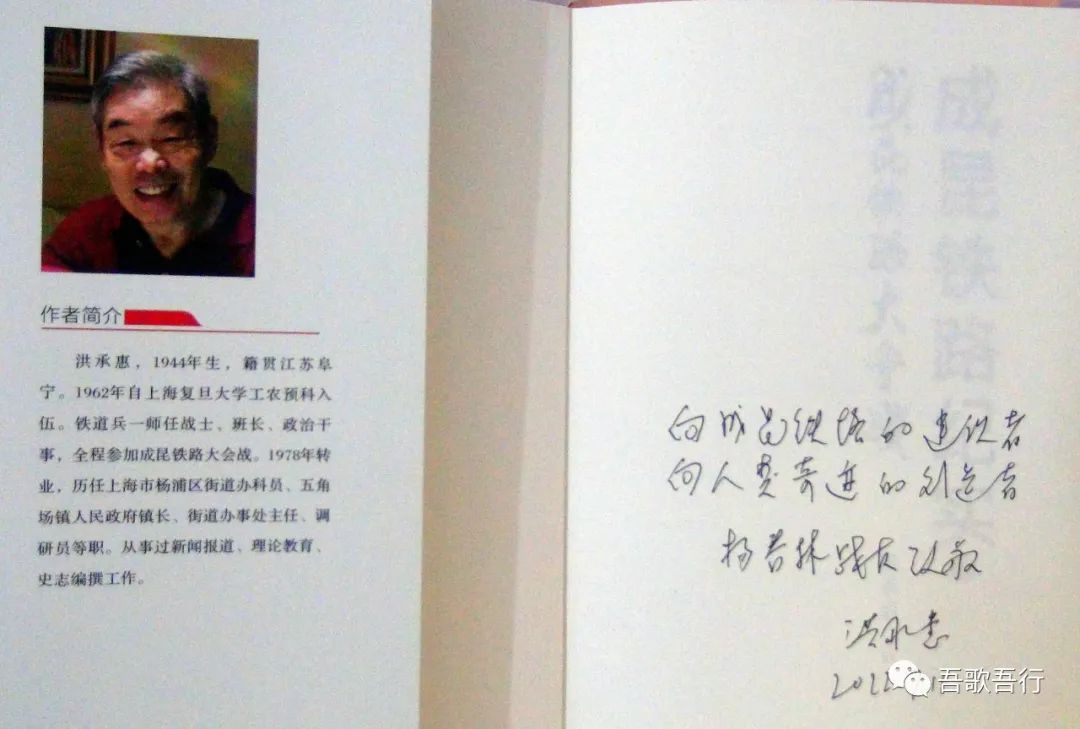 作者简介
洪承惠，1944年生，籍贯江苏阜
宁。1962年自上海复旦大学工农预科入
伍。铁道兵一师任战士、班长、政治干
事，全程参加成昆铁路大会战。1978年转
业，历任上海市杨浦区街道办科员、五角
场镇人民政府镇长、街道办事处主任、调
研员等职。从事过新闻报道、理论教育、
史志编撰工作。
成昆铁路
向成昆铁路的建设者
向人类奇迹的创造者
林战友致敬
洪承惠
吾歌吾行